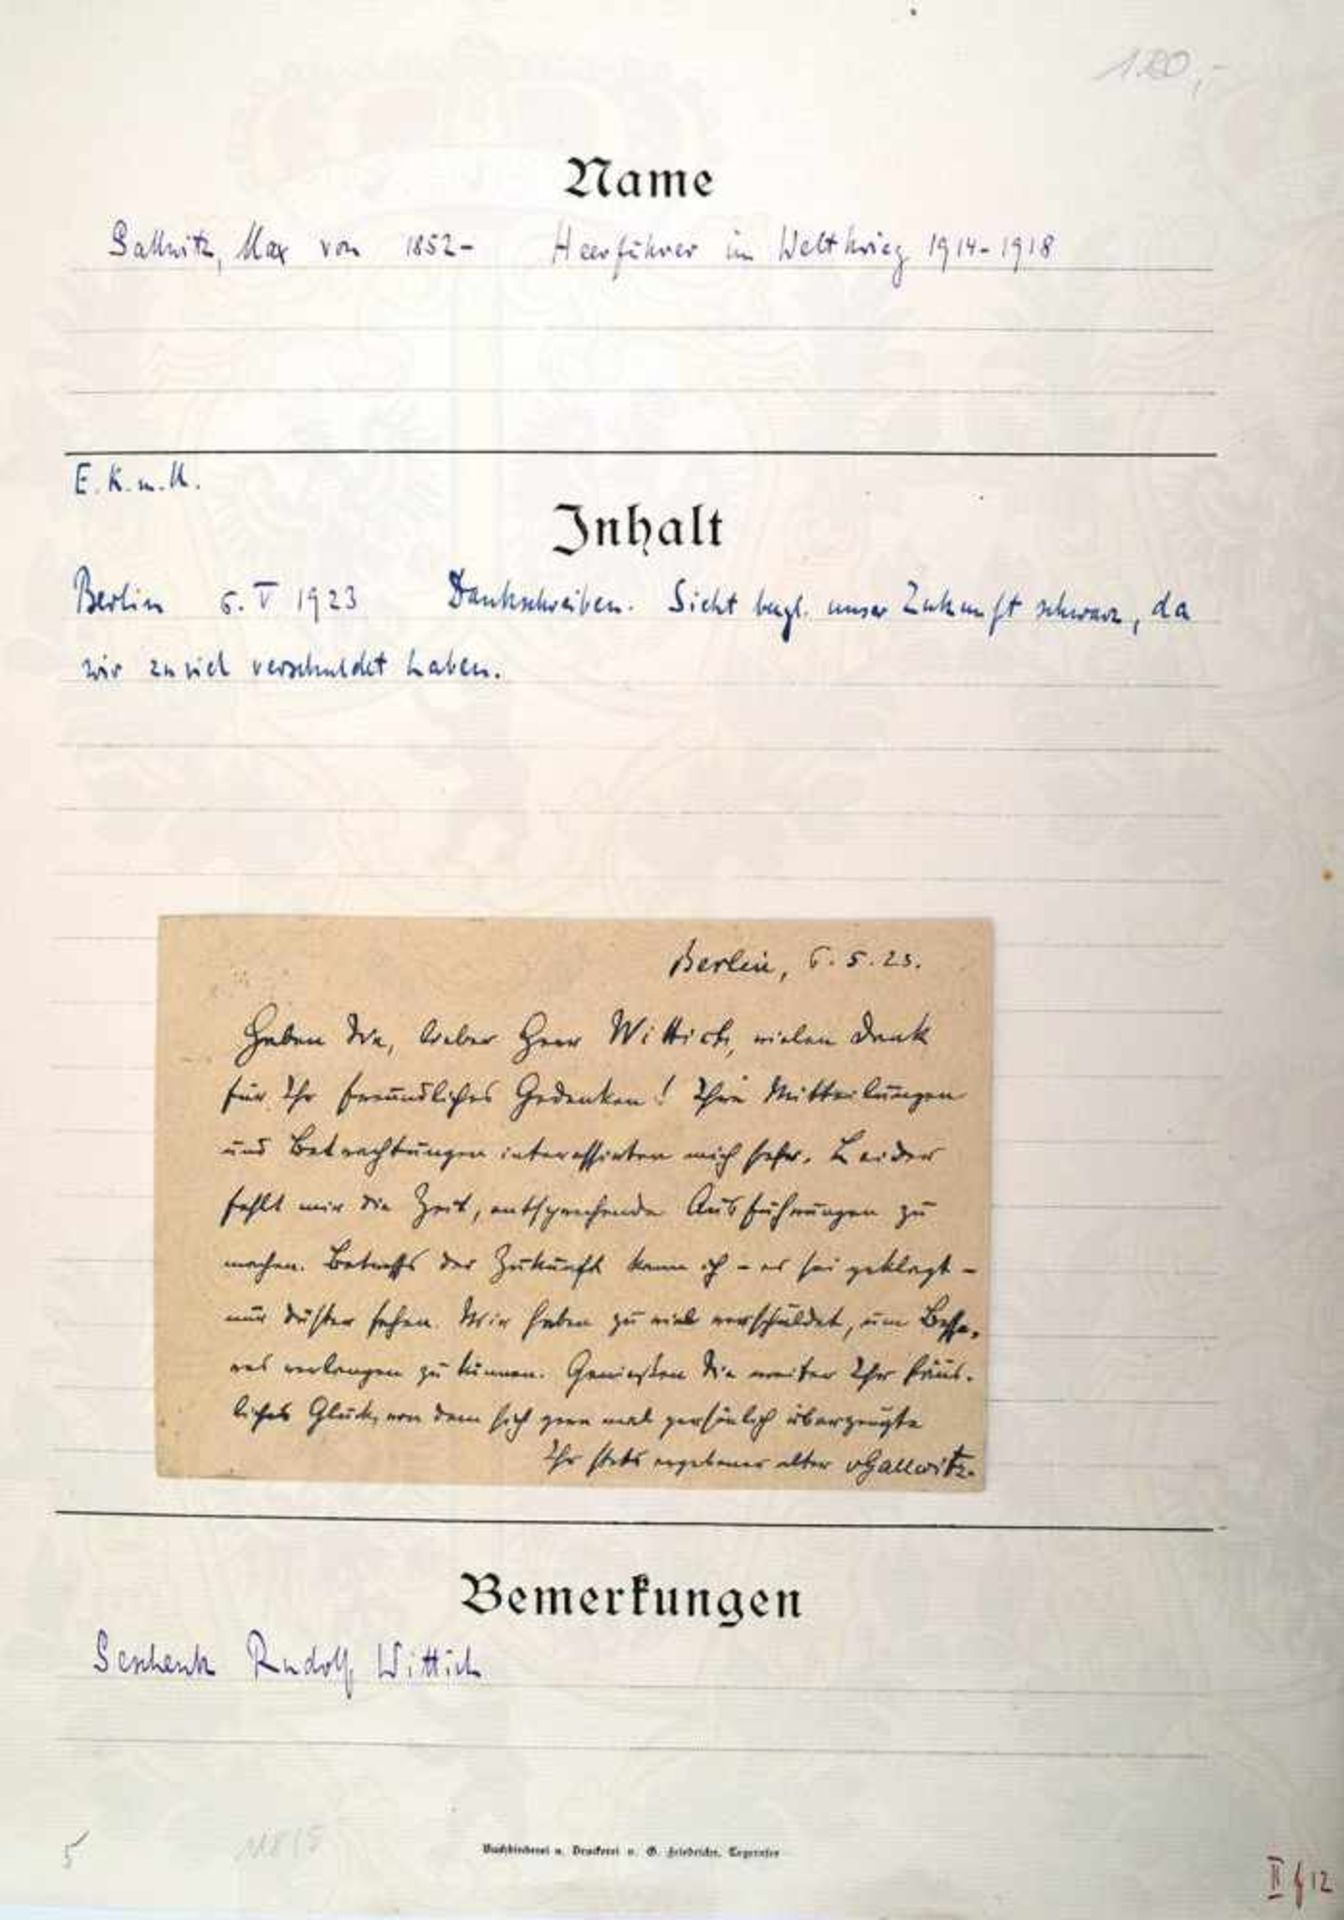 120,-
Name
Gallwitz, Max von 1852- Heerführer im Weltkrieg 1914-1918
E.K.m.U.
Inhalt
Berlin 6. V 1923 Dankschreiben. Sieht bezgl. unser Zukunft schwarz, da
wir zuviel verschuldet haben.
Berlin, 6.5.23.
Haben Sie, lieber Herr Wittich, vielen Dank
für Ihr freundliches Gedenken! Ihre Mitteilungen
und Betrachtungen interessierten mich sehr. Leider
fehlt mir die Zeit, entsprechende Ausführungen zu
machen. Betreffs der Zukunft kann ich – es sei geklagt –
nur düster sehen. Wir haben zu viel verschuldet, um Besse-
res verlangen zu können. Genießen Sie weiter Ihr häus-
liches Glück, von dem sich gern mal persönlich überzeugte
Ihr stets ergebener alter vGallwitz.
Bemerkungen
Geschenk Rudolf Wittich
5
Buchbinderei u. Druckerei v. G. Friedrichs, Tegernsee
II f 12